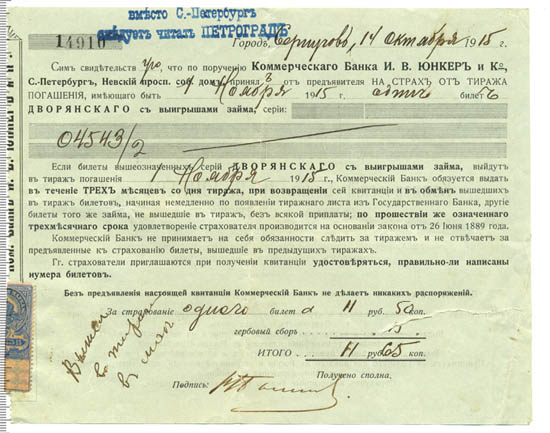 вмѣсто С.-Петербургъ
слѣдуетъ читать ПЕТРОГРАДЪ
14910
Городъ, Серпуховъ, 14 Октября 1915 г.
Симъ свидѣтельствую, что по порученію Коммерческаго Банка И. В. ЮНКЕРЪ и Ко,
С.-Петербургъ, Невскій просп. соб. домъ, принялъ отъ предъявителя НА СТРАХЪ ОТЪ ТИРАЖА
ПОГАШЕНІЯ, имѣющаго быть 1 Ноября 1915 г. одинъ билетъ
ДВОРЯНСКАГО съ выигрышами займа, серіи:
04543/2
Если билеты вышеозначенныхъ серій ДВОРЯНСКАГО съ выигрышами займа, выйдутъ
въ тиражъ погашенія 1 Ноября 1915 г., Коммерческій Банкъ обязуется выдать
въ теченіе ТРЕХЪ мѣсяцевъ со дня тиража, при возвращеніи сей квитанціи и въ обмѣнъ вышедшихъ
въ тиражъ билетовъ, начиная немедленно по появленіи тиражнаго листа изъ Государственнаго Банка, другіе
билеты того же займа, не вышедшіе въ тиражъ, безъ всякой приплаты; по прошествіи же означеннаго
трехмѣсячнаго срока удовлетвореніе страхователя производится на основаніи закона отъ 26 Іюня 1889 года.
Коммерческій Банкъ не принимаетъ на себя обязанности слѣдить за тиражемъ и не отвѣчаетъ за
предъявленные къ страхованію билеты, вышедшіе въ предыдущихъ тиражахъ.
Гг. страхователи приглашаются при полученіи квитанціи удостовѣряться, правильно-ли написаны
нумера билетовъ.
Безъ предъявленія настоящей квитанціи Коммерческій Банкъ не дѣлаетъ никакихъ распоряженій.
За страхованіе одного билета 11 руб. 50 коп.
гербовый сборъ 15
ИТОГО 11 руб. 65 коп.
Получено сполна.
Подпись:
въ тиражъ